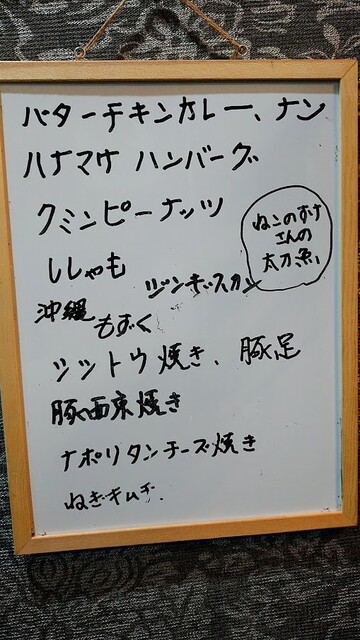 バターチキンカレー、ナン
ハナマサ ハンバーグ
クミンピーナッツ
ねこのすけ
さんの
太刀魚
ししゃも
ジンギスカン
沖縄
もずく
シットウ焼き、豚足
豚西京焼き
ナポリタンチーズ焼き
ねぎキムチ